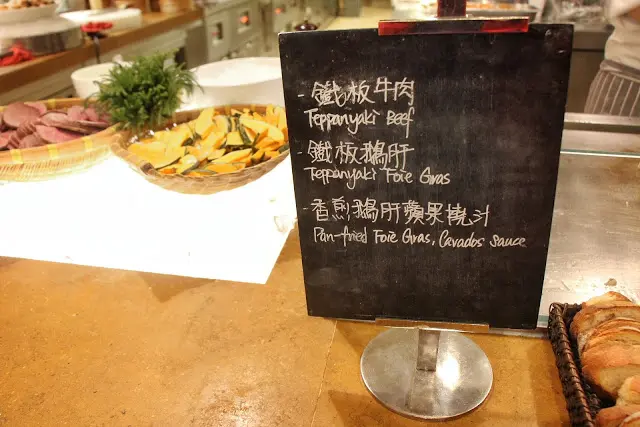 - 鐵板牛肉
Teppanyaki Beef
- 鐵板鵝肝
Teppanyaki Foie Gras
- 香煎鵝肝蘋果燒汁
Pan-fried Foie Gras, Cavados sauce